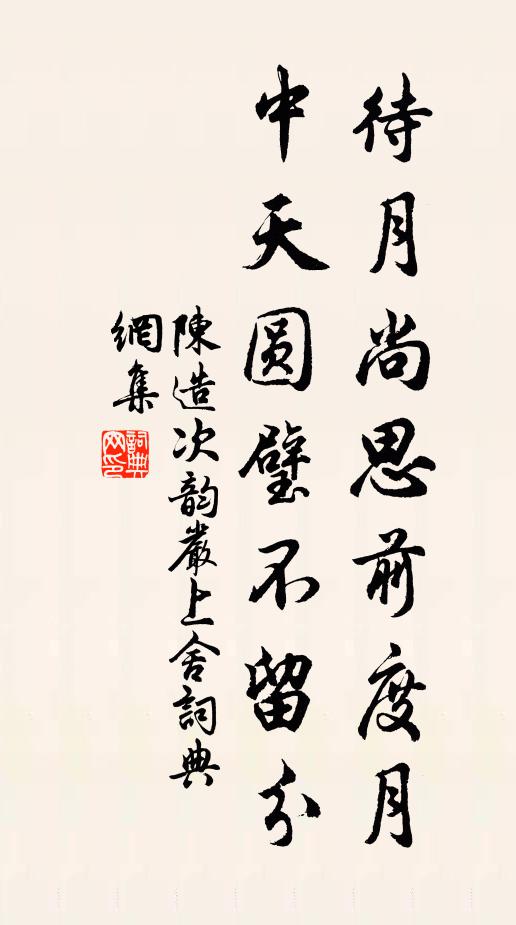 待月尚思前度月
中天圆璧不留分
陳造次韵嚴上舍詞典
網集
詞典
网印